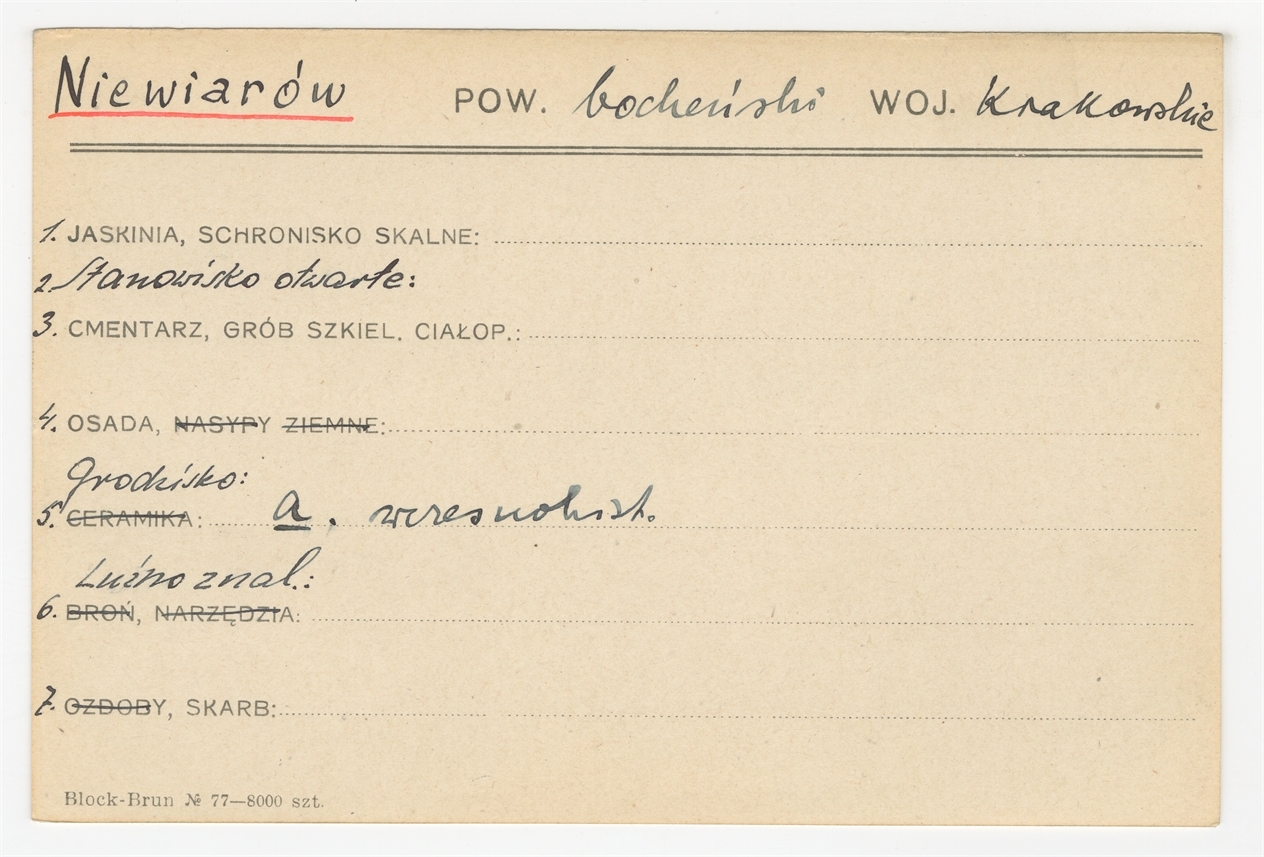 Niewiarów POW. bocheński WOJ. Krakowskie
1. JASKINIA, SCHRONISKO SKALNE:
2. Stanowisko otwarte:
3. CMENTARZ, GRÓB SZKIEL. CIAŁOP.:
4. OSADA, NASYPY ZIEMNE:
Grodzisko:
5. CERAMIKA: a. wczesnohist.
Luźno znal.:
6. BROŃ, NARZĘDZIA:
7. OZDOBY, SKARB:
Block-Brun № 77—8000 szt.